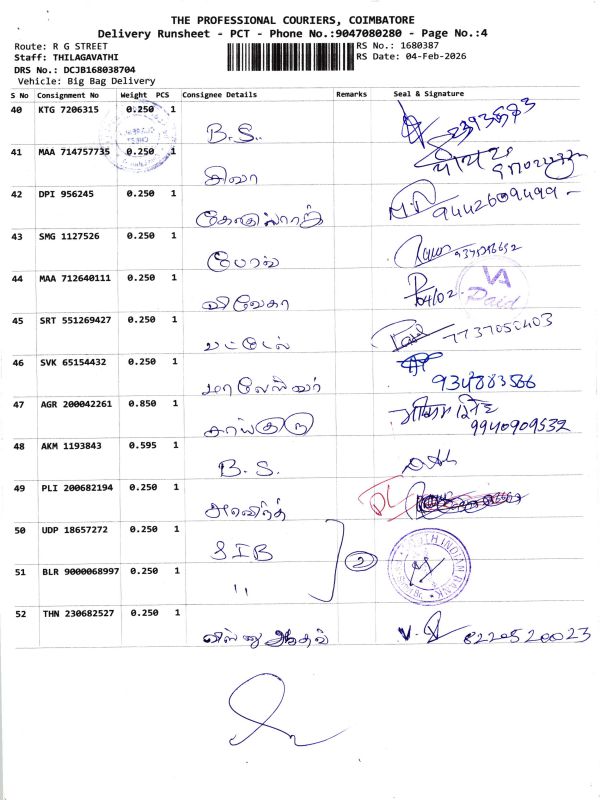 THE PROFESSIONAL COURIERS, COIMBATORE
Delivery Runsheet - PCT - Phone No.:9047080280 - Page No.:4
Route: R G STREET
RS No.: 1680387
Staff: THILAGAVATHI
RS Date: 04-Feb-2026
DRS No.: DCJB168038704
Vehicle: Big Bag Delivery
S No Consignment No Weight PCS Consignee Details Remarks Seal & Signature
40 KTG 7206315 0.250 1
B.S.
41 MAA 714757735 0.250 1
சிவா
42 DPI 956245 0.250 1
9442609499
43 SMG 1127526 0.250 1
போஸ்
44 MAA 712640111 0.250 1
விவேகா 04/02
VA
Paid
45 SRT 551269427 0.250 1
பட்டேல் 7737052403
46 SVK 65154432 0.250 1
47 AGR 200042261 0.850 1
9940909532
48 AKM 1193843 0.595 1
B.S.
49 PLI 200682194 0.250 1
அரவிந்த் DL
50 UDP 18657272 0.250 1
SIB
2
SOUTH INDIAN BANK
51 BLR 9000068997 0.250 1
"
52 THN 230682527 0.250 1
8220520023